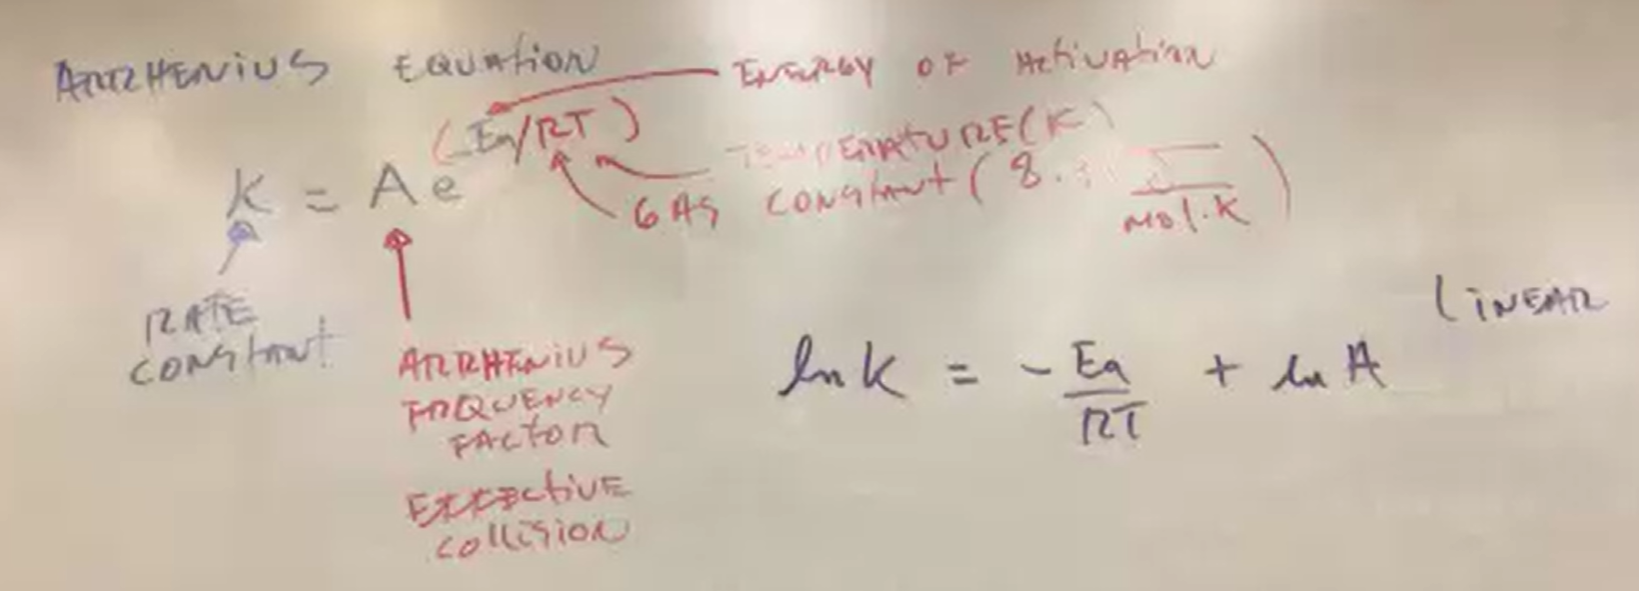 ARRHENIUS EQUATION
ENERGY OF ACTIVATION
k = A e (Ea/RT)
TEMPERATURE (K)
GAS CONSTANT (8. J / mol.K)
RATE
CONSTANT
ARRHENIUS
FREQUENCY
FACTOR
EFFECTIVE
COLLISION
LINEAR
ln k = - Ea/RT + ln A